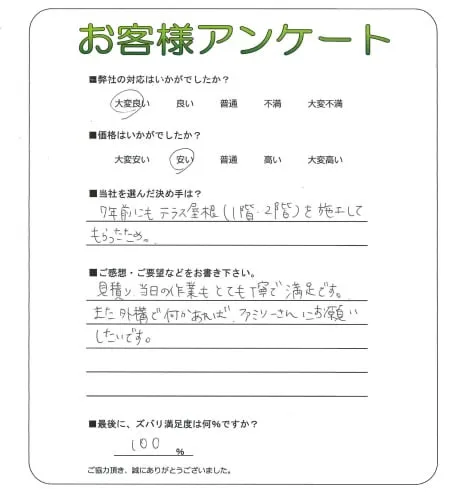 お客様アンケート
■弊社の対応はいかがでしたか?
大変良い 良い 普通 不満 大変不満
■価格はいかがでしたか?
大変安い 安い 普通 高い 大変高い
■当社を選んだ決め手は?
7年前にも テラス屋根(1階・2階)を施工して
もらったため。
■ご感想・ご要望などをお書き下さい。
見積り、当日の作業もとても丁寧で満足です。
また外構で何かあれば、ファミリーさんにお願い
したいです。
■最後に、ズバリ満足度は何%ですか?
100 %
ご協力頂き、誠にありがとうございました。